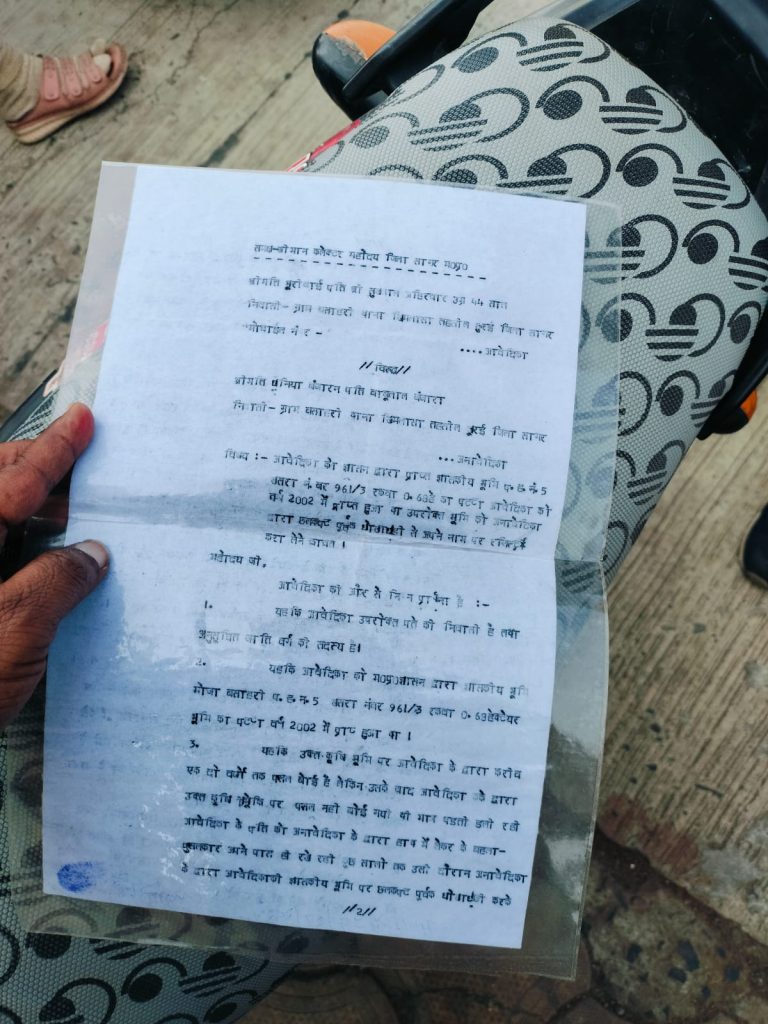 समक्ष-श्रीमान कलेक्टर महोदय जिला सागर म०प्र०
श्रीमति पति श्री अहिरवार उम्र 44 साल
निवासी- ग्राम बसाहरी थाना खिमलासा तहसील खुरई जिला सागर
मोबाईल नं र -
....आवेदिका
//विरूद्ध//
श्रीमति पुनिया बंजारन पति बाबूलाल बंजारा
निवासी- ग्राम बसाहरी थाना खिमलासा तहसील खुरई जिला सागर
...अनावेदिका
विषय :- आवेदिका को शासन द्वारा प्राप्त शासकीय भूमि प.ह.नं.5
खसरा नं.बर 961/3 रकवा 0.63हे का पट्टा आवेदिका को
वर्ष 2002 में प्राप्त हुआ था उपरोक्त भूमि को अनावेदिका
द्वारा छलकपट पूर्वक धोखाधड़ी से अपने नाम पर रजिस्ट्री
करा लेने बावत ।
महोदय जी,
आवेदिका की ओर से निम्न प्रार्थना है :-
1. यहकि आवेदिका उपरोक्त पते की निवासी है तथा
अनुसूचित जाति वर्ग की सदस्य है।
2. यहकि आवेदिका को म०प्र०शासन द्वारा शासकीय भूमि
मौजा बसाहरी प.ह.नं.5 खसरा नंबर 961/3 रकवा 0.63हेक्टेयर
भूमि का पट्टा वर्ष 2002 में प्राप्त हुआ था ।
3. यहकि उक्त कृषि भूमि पर आवेदिका के द्वारा करीब
एक दो वर्षों तक फसल बोई है लेकिन उसके बाद आवेदिका के द्वारा
उक्त कृषि भूमि पर फसल नहीं बोई गयी थी भाग पड़ती डली रही
आवेदिका के पति को अनावेदिका के द्वारा हाथ में लेकर के बहला-
फुसलाकर अपने पास ही रखे रही कुछ सालों तक उसी दौरान अनावेदिका
के द्वारा आवेदिकाकी शासकीय भूमि पर छलकपट पूर्वक धोखाधड़ी करके
//2//